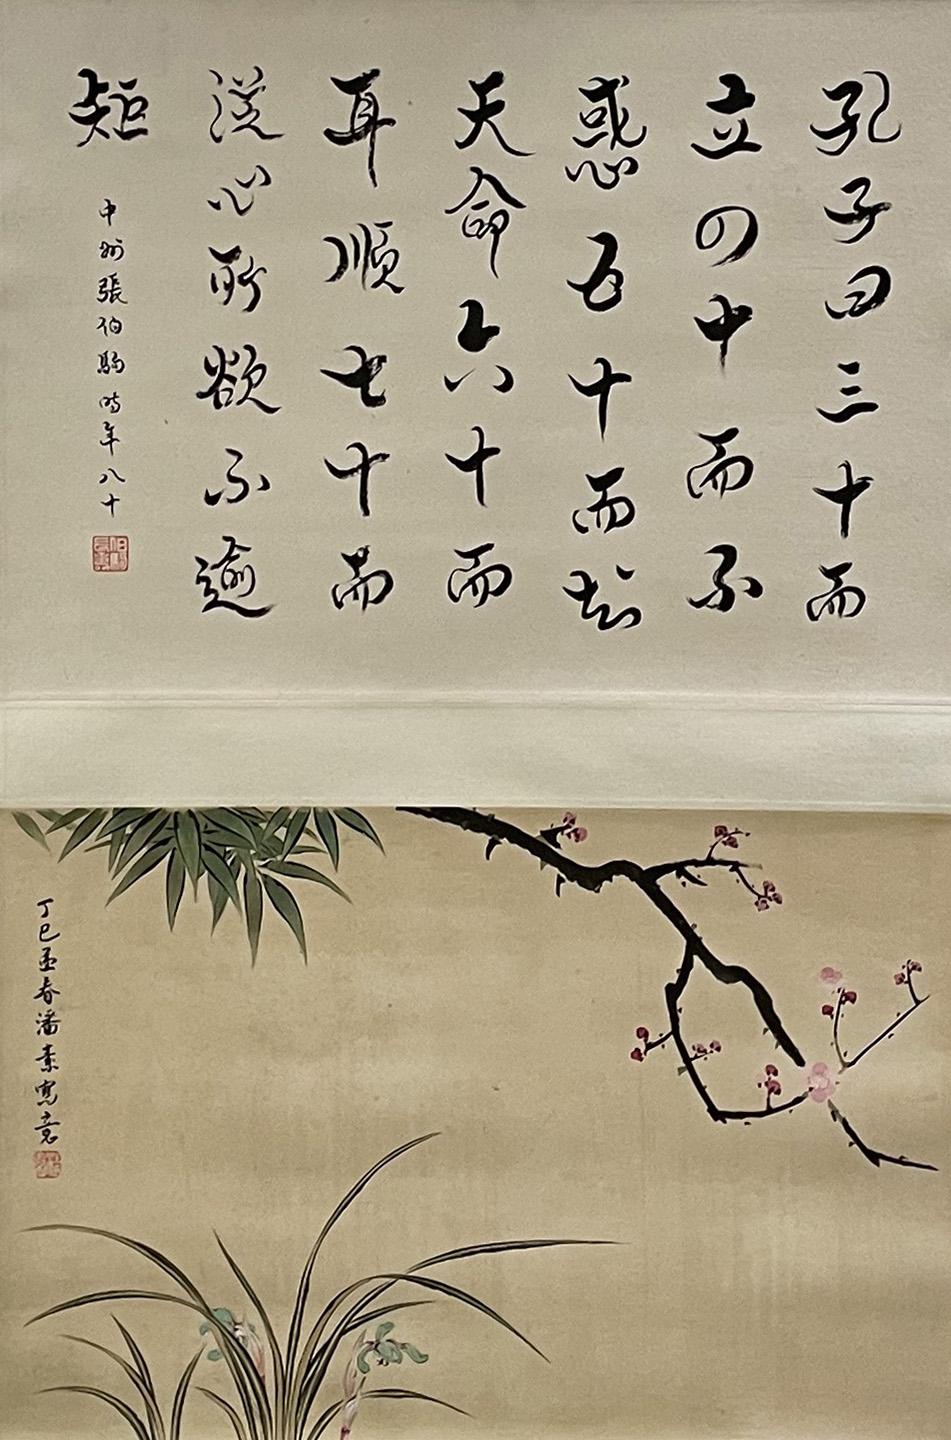 孔子曰三十而
立四十而不
惑五十而知
天命六十而
耳順七十而
從心所欲不逾
矩
中州張伯駒時年八十
丁巳孟春潘素寫意